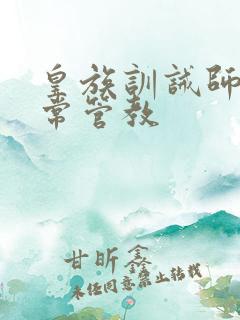 皇族訓誡師
常管教
甘昕鑫
未经同意禁止转载